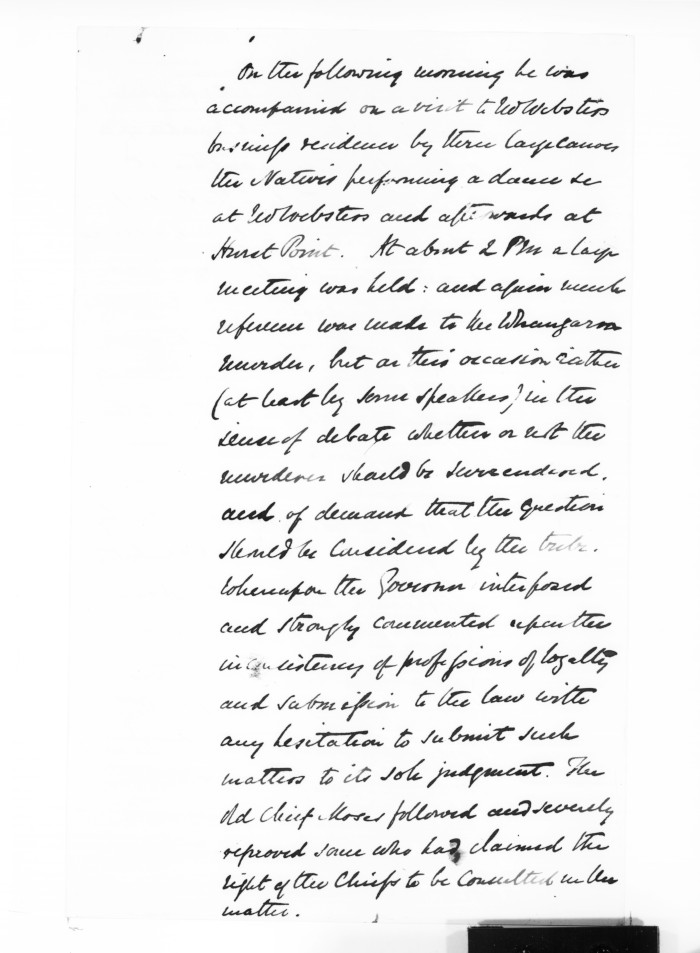 On the following morning he was
accompanied on a visit to Webster's
business residence by three large canoes
the Natives performing a dance &c
at Webster's and afterwards at
Hurst Point. At about 2 PM a large
meeting was held: and again much
reference was made to the Whangaroa
murder, but on this occasion rather
(at least by some speakers) in the
sense of debate whether or not the
murderer should be surrendered.
and of demand that the question
should be considered by the tribe.
Whereupon the Governor interposed
and strongly commented upon the
inconsistency of professions of loyalty
and submission to the law with
any hesitation to submit such
matters to its sole judgment. The
Old Chief Moses followed and severely
reproved some who had claimed the
right of the Chiefs to be consulted in the
matter.